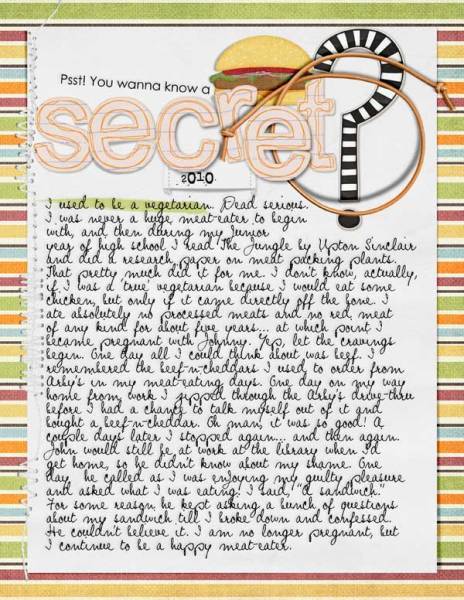 Psst! You wanna know a
secret?
2010
I used to be a vegetarian. Dead serious.
I was never a huge meat-eater to begin
with, and then during my Junior
year of high school I read The Jungle by Upton Sinclair
and did a research paper on meat packing plants.
That pretty much did it for me. I don't know, actually,
if I was a 'true' vegetarian because I would eat some
chicken, but only if it came directly off the bone. I
ate absolutely no processed meats and no red meat
of any kind for about five years... at which point I
became pregnant with Johnny. Yep, let the cravings
begin. One day all I could think about was beef. I
remembered the beef-n-cheddars I used to order from
Arby's in my meat-eating days. One day on my way
home from work I zipped through the Arby's drive-thru
before I had a chance to talk myself out of it and
bought a beef-n-cheddar. Oh man, it was so good! A
couple days later I stopped again... and then again.
John would still be at work at the library when I'd
get home, so he didn't know about my shame. One
day he called as I was enjoying my guilty pleasure
and asked what I was eating. I said, "A sandwich."
For some reason he kept asking a bunch of questions
about my sandwich till I broke down and confessed.
He couldn't believe it. I am no longer pregnant, but
I continue to be a happy meat-eater.